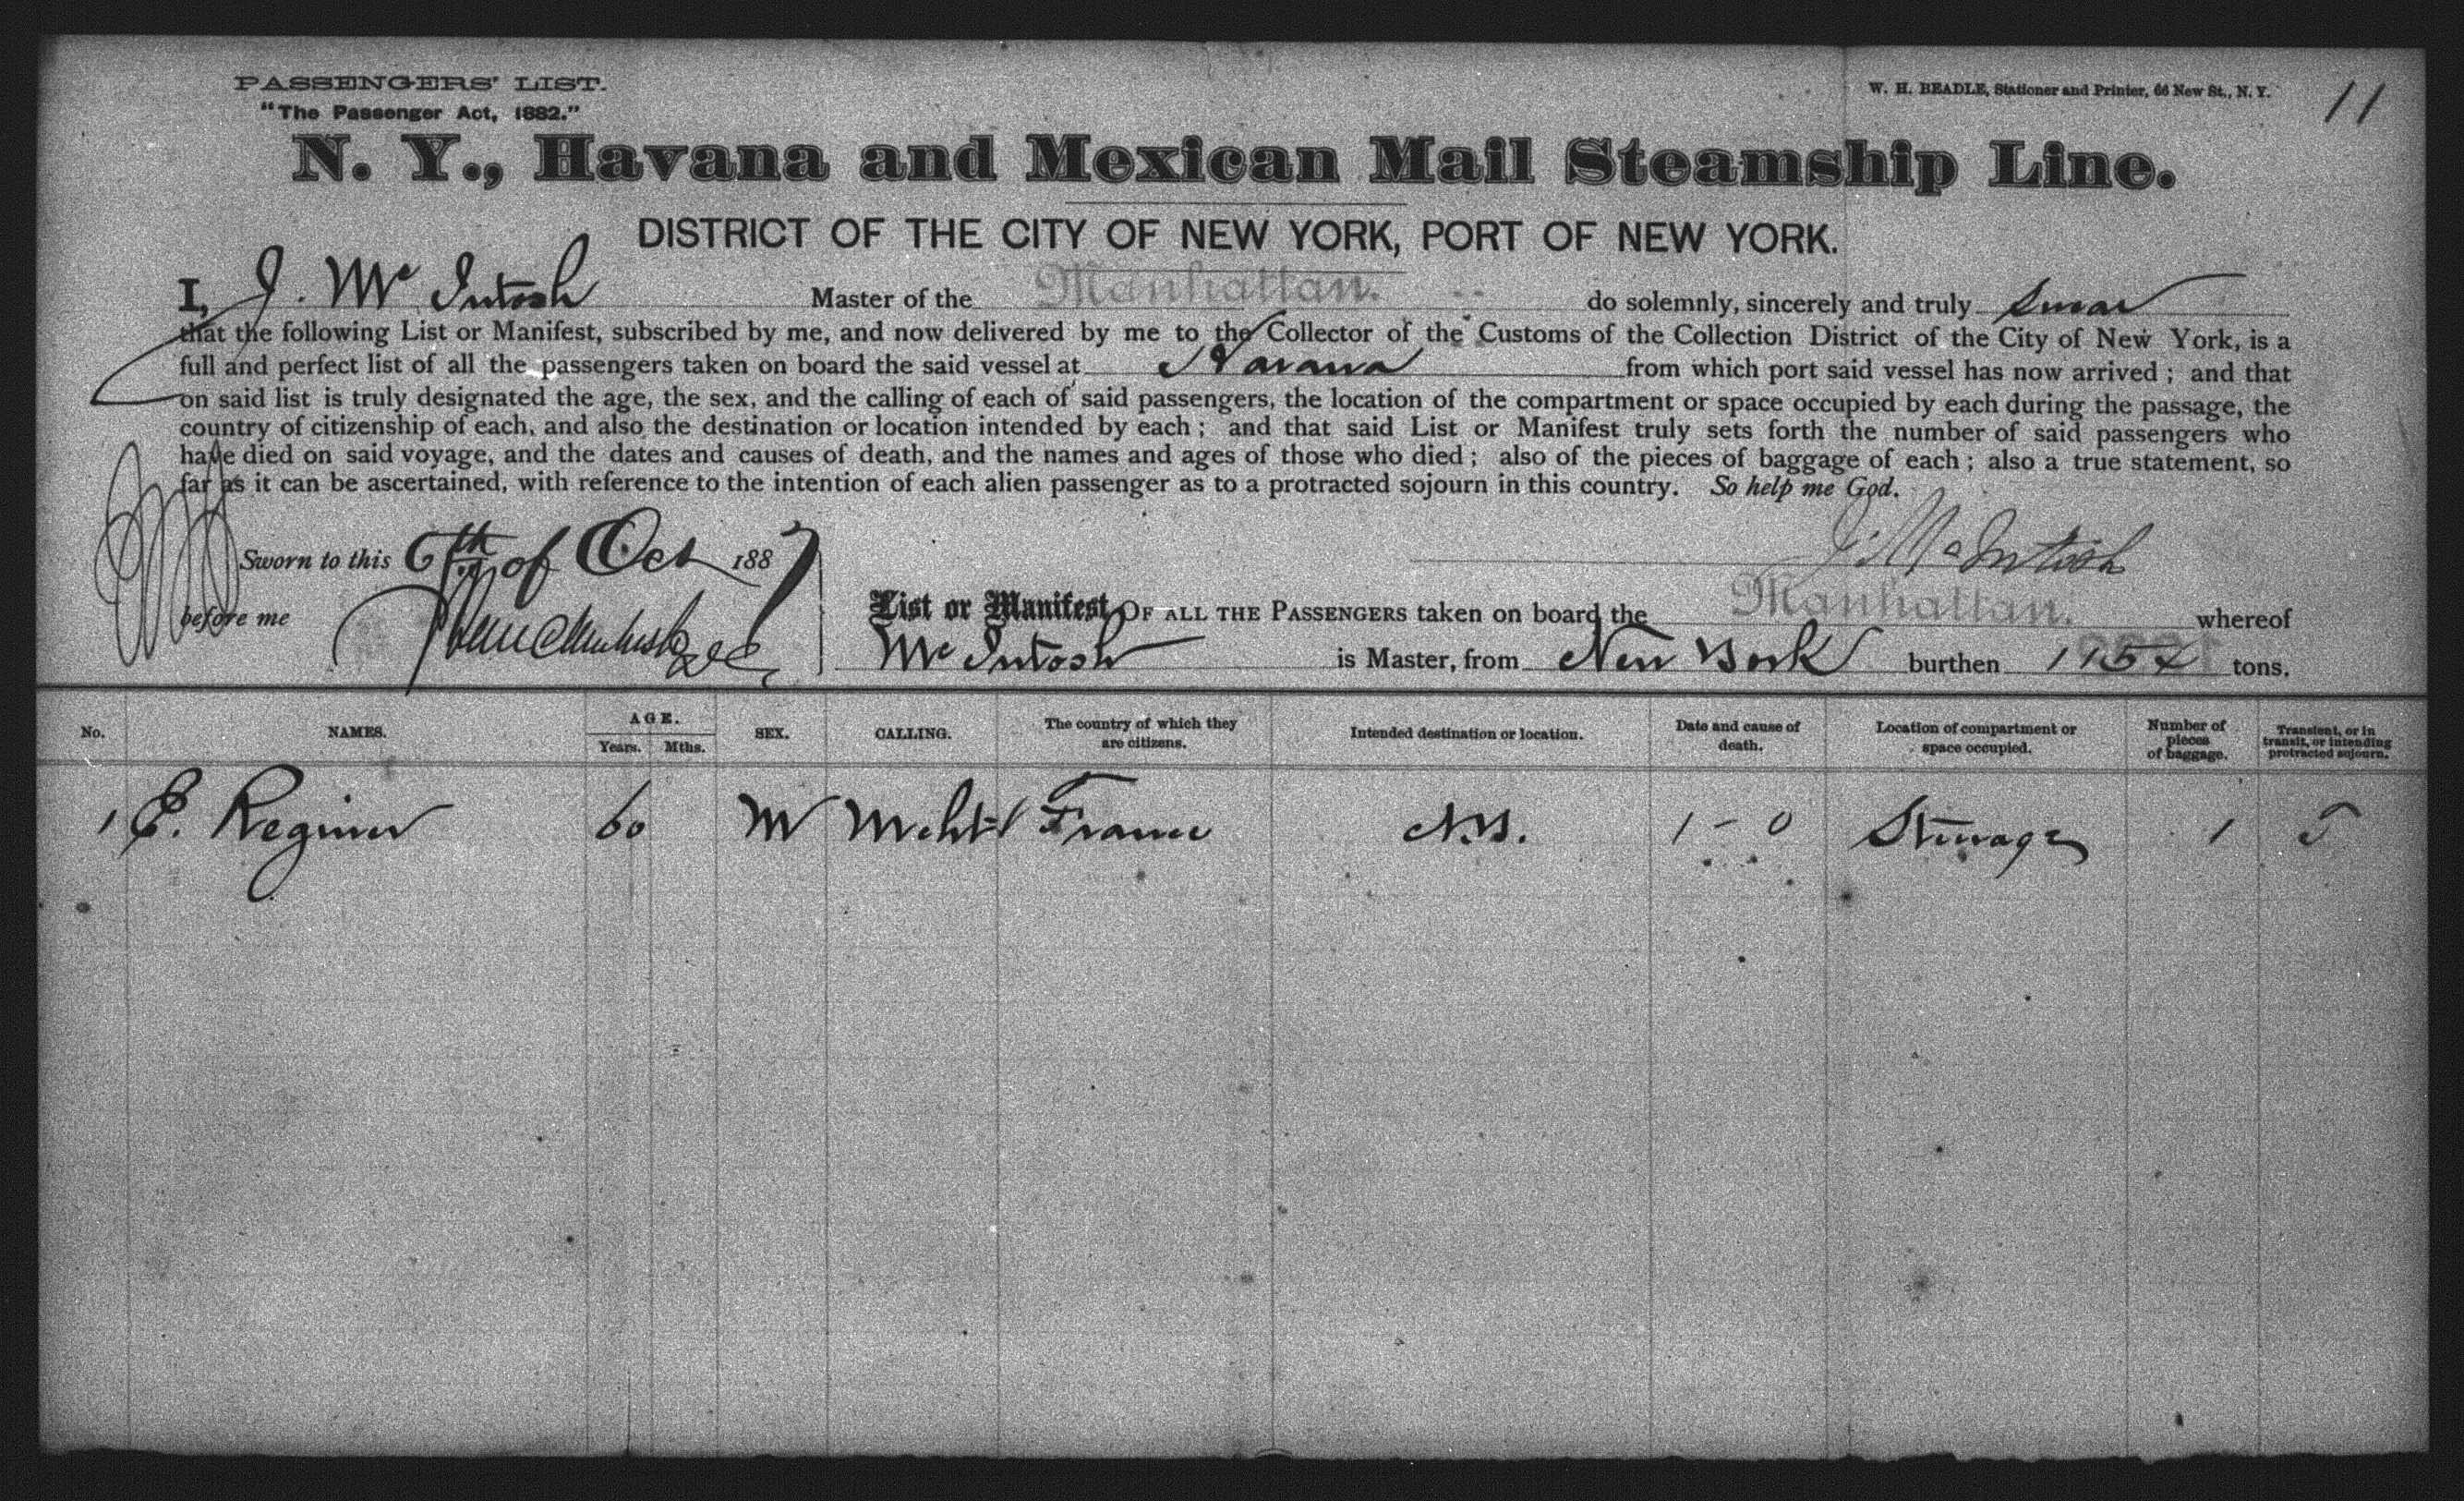 PASSENGERS' LIST.
"The Passenger Act, 1882."
W. H. BEADLE, Stationer and Printer, 66 New St., N. Y.
11
N. Y., Havana and Mexican Mail Steamship Line.
DISTRICT OF THE CITY OF NEW YORK, PORT OF NEW YORK.
I, J. Mc Intosh Master of the Manhattan. do solemnly, sincerely and truly swear
that the following List or Manifest, subscribed by me, and now delivered by me to the Collector of the Customs of the Collection District of the City of New York, is a
full and perfect list of all the passengers taken on board the said vessel at Havana from which port said vessel has now arrived; and that
on said list is truly designated the age, the sex, and the calling of each of said passengers, the location of the compartment or space occupied by each during the passage, the
country of citizenship of each, and also the destination or location intended by each; and that said List or Manifest truly sets forth the number of said passengers who
have died on said voyage, and the dates and causes of death, and the names and ages of those who died; also of the pieces of baggage of each; also a true statement, so
far as it can be ascertained, with reference to the intention of each alien passenger as to a protracted sojourn in this country. So help me God.
J. McIntosh
Sworn to this 6th of Oct 1887
before me
List or Manifest OF ALL THE PASSENGERS taken on board the Manhattan. whereof
Mc Intosh is Master, from New York burthen 1154 tons.
No. NAMES. AGE. Years. Mths. SEX. CALLING. The country of which they are citizens. Intended destination or location. Date and cause of death. Location of compartment or space occupied. Number of pieces of baggage. Transient, or in transit, or intending protracted sojourn.
1 E. 60 M Mcht France N.Y. 1 - 0 Steerage 1 T